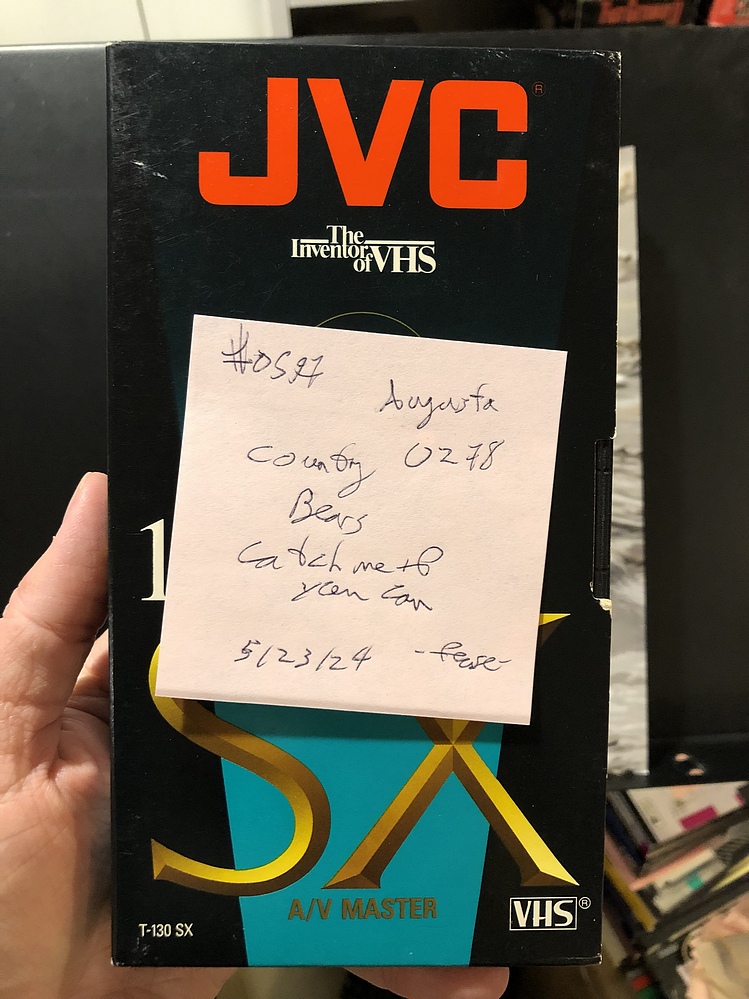 JVC®
The
Inventor
of VHS
#0597
Augusta
Country 0278
Bears
Catch me if
you can
5/23/24
1
SX
A/V MASTER
T-130 SX
VHS®